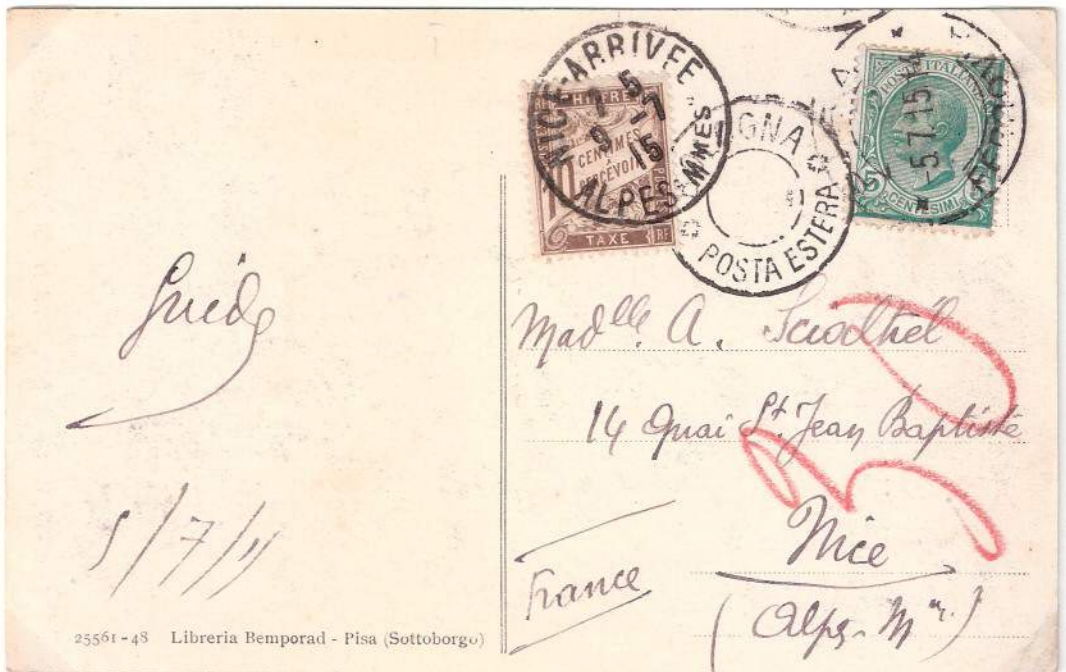 NICE-ARRIVEE
7 5
9 15
ALPES MMES
CHIFFRE
CENTIMES
A
PERCEVOIR
10
TAXE RF
GNA
POSTA ESTERA
POSTE ITALIANE
-5.7.15.14
5 CENTESIMI
FERROVIA
Guido
Madelle. A.
14 Quai St. Jean Baptiste
Nice
France
(Alpes-Mmes.)
25561-48 Libreria Bemporad - Pisa (Sottoborgo)